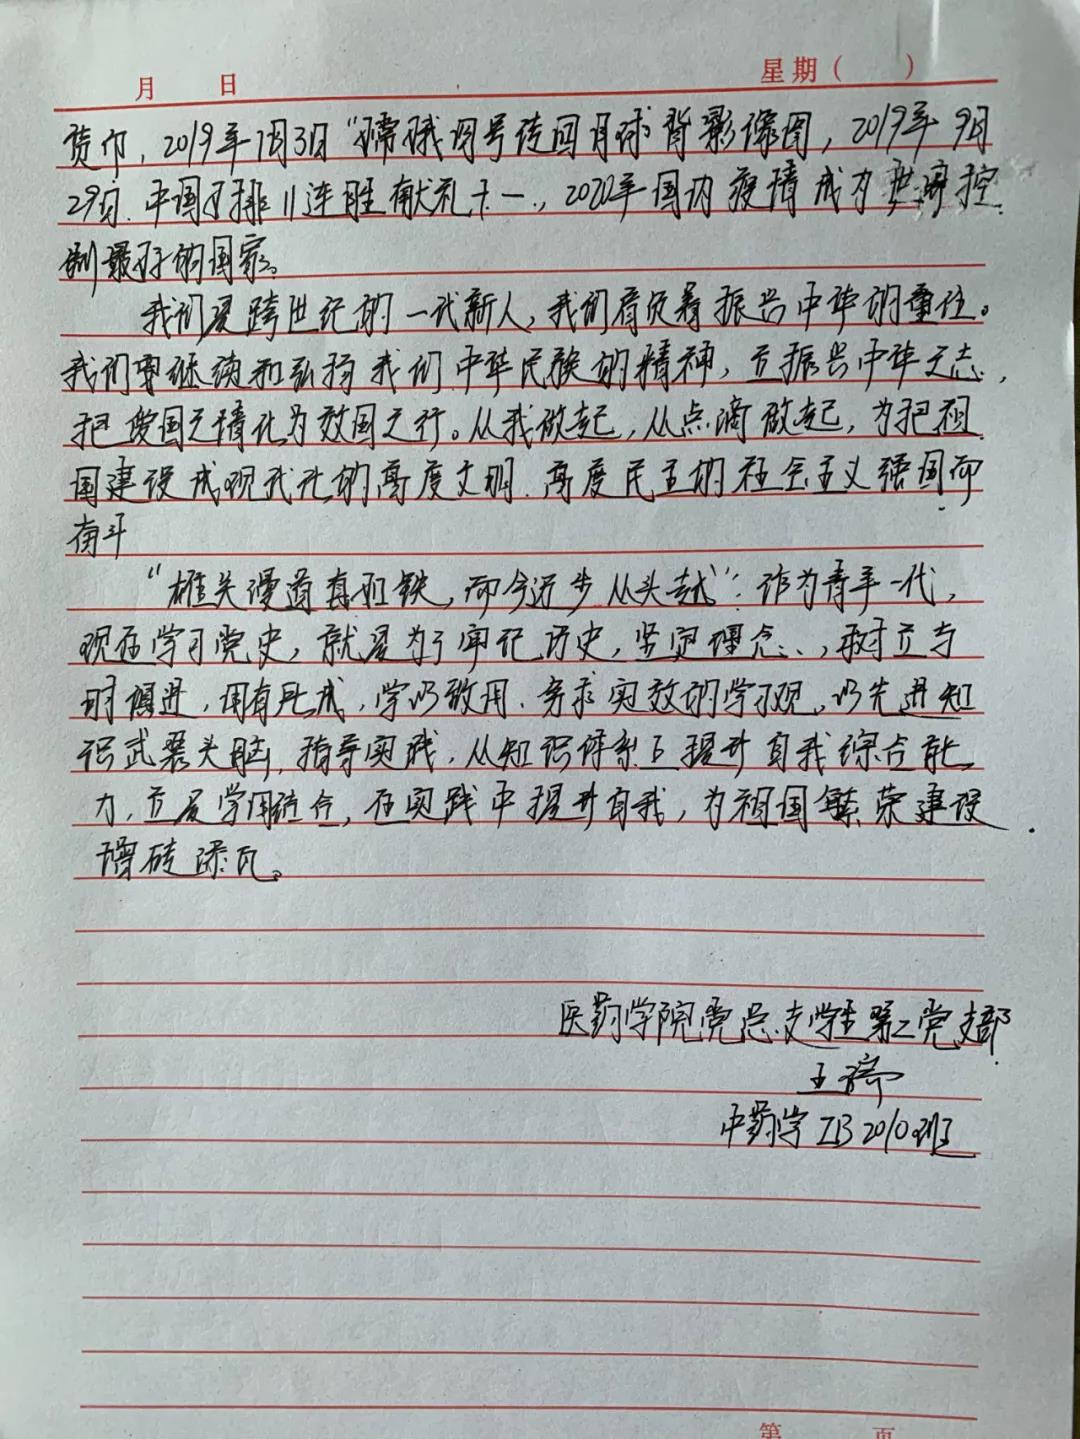 月 日 星期( )
货币，2019年1月3日“嫦娥四号传回月球背影像图，2019年9月
29日.中国女排11连胜献礼十一.，2020年国内疫情成为世界控
制最好的国家。
我们是跨世纪的一代新人，我们肩负着振兴中华的重任。
我们要继续和弘扬我们中华民族的精神，立振兴中华之志，
把爱国之情化为效国之行。从我做起，从点滴做起，为把祖
国建设成现代化的高度文明.高度民主的社会主义强国而
奋斗
“雄关漫道真如铁，而今迈步从头越”：作为青年一代，
现在学习党史，就是为了牢记历史，坚定理念、，树立与
时俱进，用有所成，学以致用.务求实效的学习观。以先进知
识武装头脑，指导实践，从知识体系上提升自我综合能
力，立足学用结合，在实践中提升自我，为祖国繁荣建设
增砖添瓦。
医药学院党总支学生第二党支部
王
中药学ZB2010班
第 页